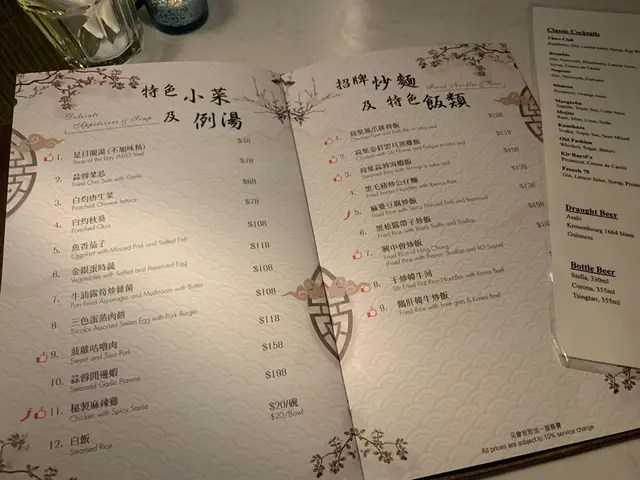 特色小菜
及 例湯
Delicate
Appetizers & Soup
1. 是日靚湯 (不加味精) $48
Soup of the Day (MSG free)
2. 蒜蓉菜芯 $78
Fried Choi Sum with Garlic
3. 白灼唐生菜 $68
Poached Chinese Lettuce
4. 白灼秋葵 $78
Poached Okra
5. 魚香茄子 $108
Eggplant with Minced Pork and Salted Fish
6. 金銀蛋時蔬 $118
Vegetables with Salted and Preserved Egg
7. 牛油露筍炒雜菌 $108
Pan Fried Asparagus and Mushroom with Butter
8. 三色蛋蒸肉餅 $108
Tricolor Assorted Steam Egg with Pork Burger
9. 菠蘿咕嚕肉 $118
Sweet and Sour Pork
10. 蒜蓉開邊蝦 $158
Steamed Garlic Prawns
11. 秘製麻辣雞 $198
Chicken with Spicy Sauce
12. 白飯 $20/碗
Steamed Rice $20/Bowl
招牌炒麵
及 特色飯類
Fried Noodles & Rice
1.
2.
3.
4. 黑毛豬炒公仔麵
5. 麻婆豆腐炒飯
Fried Rice with Spicy Minced Pork and Beancurd
6. 黑松露帶子炒飯
Fried Rice with Black Truffle and Scallop
7. 興中會炒飯
Fried Rice of Hing Chung
(Fried Rice with Prawn, Scallop and XO Sauce)
8. 干炒韓牛河
Stir Fried Flat Rice Noodles with Korea Beef
9. 鵝肝韓牛炒飯
Fried Rice with Foie gras & Korea Beef
另會收取加一服務費
All prices are subject to 10% service charge
Classic Cocktails
Clove Club
Bramble
Negroni
Mimosa
Margarita
Tequila, Triple Sec, Lime Juice
Mojito
Rum, Mint, Lime, Soda
Kamikaze
Vodka, Triple Sec, Sour Mixed
Old Fashion
Whiskey, Sugar, Bitters
Kir Royal's
Prosecco, Crème de Cassis
French 75
Gin, Lemon Juice, Syrup,
Draught Beer
Asahi
Kronenbourg 1664 blanc
Guinness
Bottle Beer
Stella, 330ml
Corona, 355ml
Tsingtao, 355ml